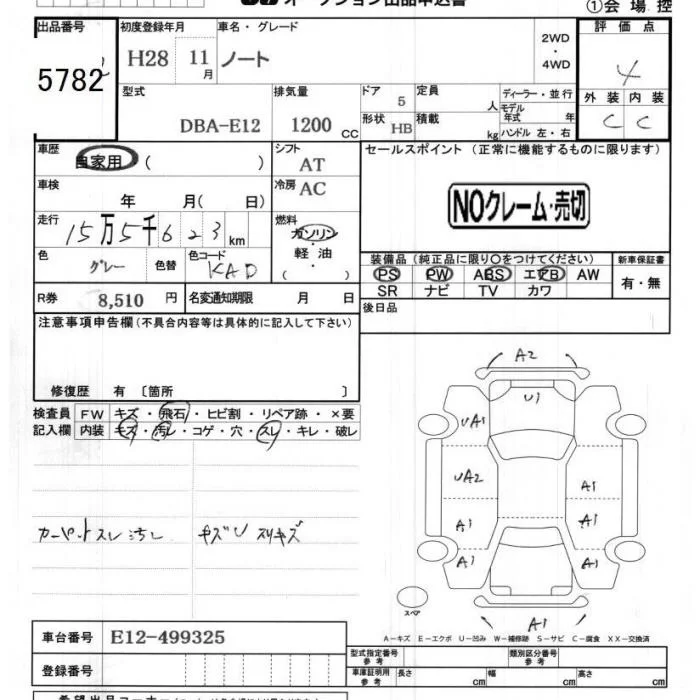 オークション出品申込書
①会場控
出品番号 初度登録年月 車名・グレード 2WD ・ 4WD 評価点
5782 H28 11月 ノート 4
型式 排気量 ドア 5 定員 人 ディーラー・並行 外装 内装
DBA-E12 1200 CC 形状 HB 積載 kg モデル年式 年 C C
ハンドル 左・右
車歴 自家用 ( ) シフト AT セールスポイント (正常に機能するものに限ります)
車検 年 月( 日) 冷房 AC NOクレーム・売切
走行 15万5千623 km 燃料 ガソリン
軽油
( )
色 グレー 色替 色コード KAD
装備品 (純正品に限り○をつけてください) 新車保証書
PS PW ABS エアB AW 有・無
SR ナビ TV カワ
R券 8,510 円 名変通知期限 月 日 後日品
注意事項申告欄 (不具合内容等は具体的に記入して下さい)
修復歴 有 〔箇所 〕
検査員 FW キズ・飛石・ヒビ割・リペア跡・×要
記入欄 内装 キズ・汚レ・コゲ・穴・スレ・キレ・破レ
A2
U1
UA1
UA2 A1
A1 A1
A1 A1
カーペットスレ汚レ キズU スリキズ
スペア
A1
A-キズ E-エクボ U-凹み W-補修跡 S-サビ C-腐食 XX-交換済
車台番号 E12-499325
型式指定番号 参考 類別区分番号 参考
登録番号
車庫証明用 参考 長さ cm 幅 cm 高さ cm